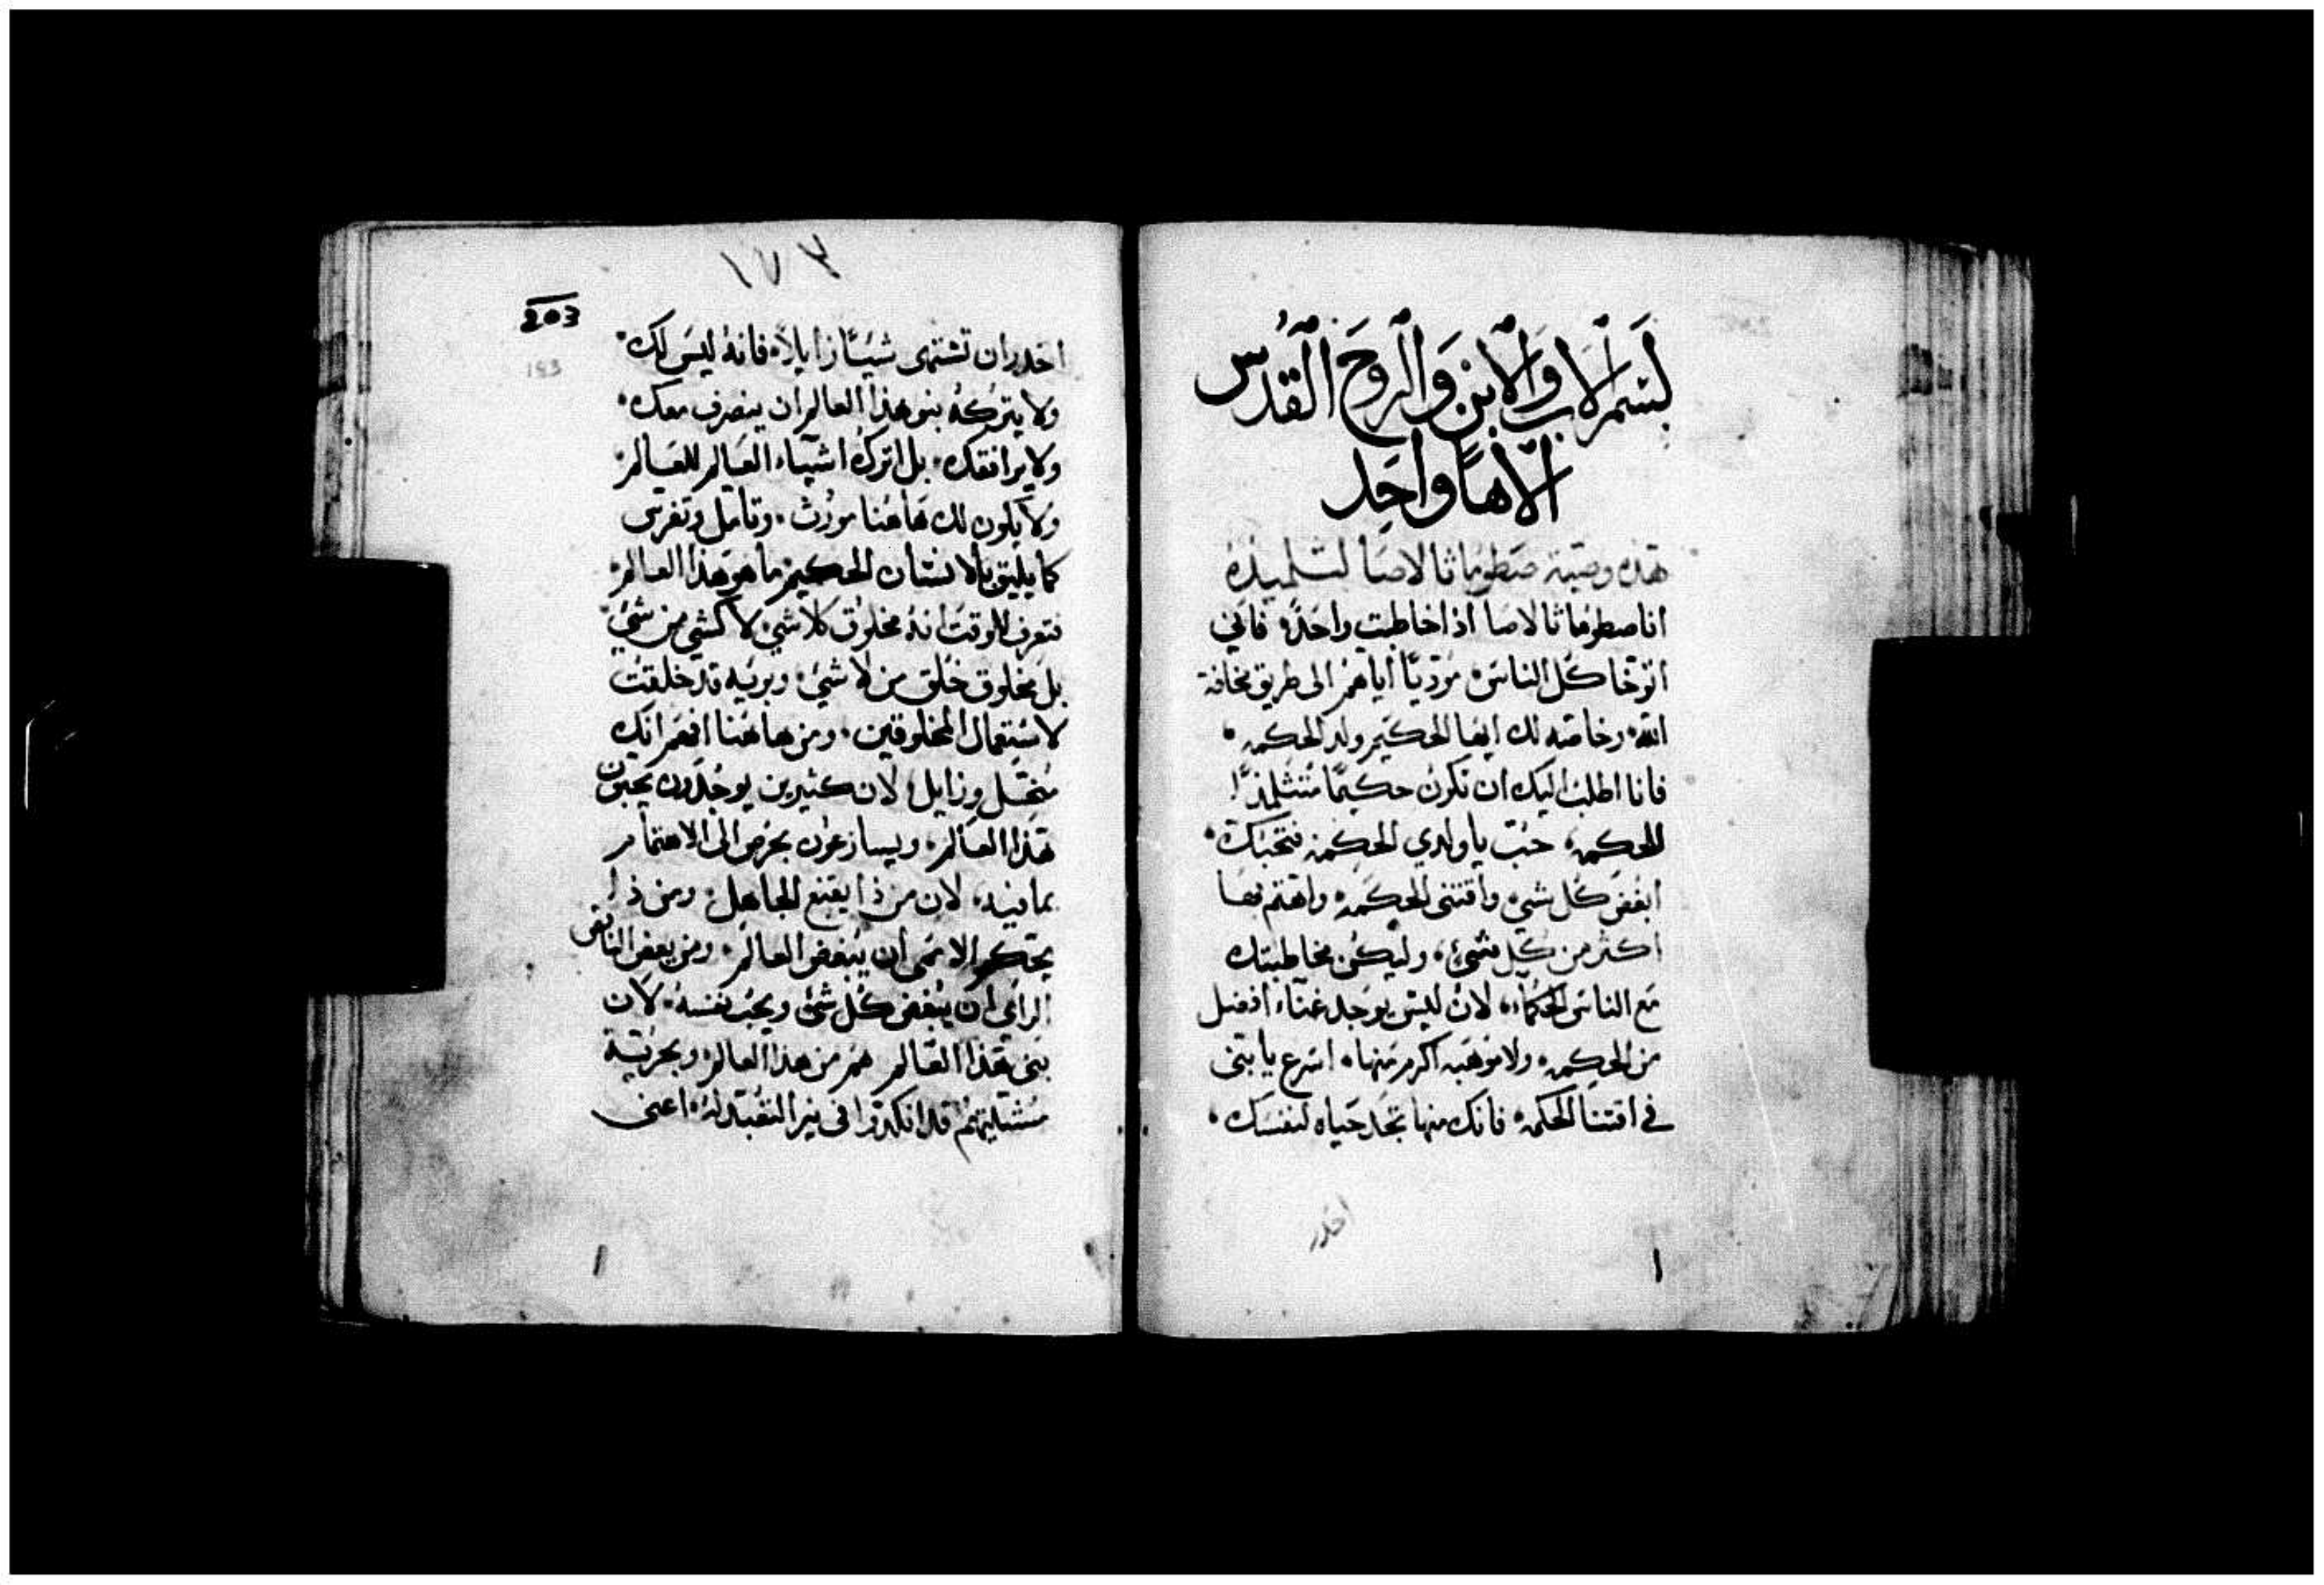 بسم الاب والابن والروح القدس
الاهًا واحد
هذه وصية صطوماثالاصا لتلميذه
انا صطوماثالاصا اذا خاطبت واحدًا فاني
اتوخا كل الناس مودّيًا اياهم الى طريق مخافة
الله وخاصه لك ايها الحكيم ولد الحكمه
فانا اطلب اليك ان تكون حكيمًا متثلمذًا
للحكمه حب يا ولدي الحكمه فتحبك
ابغض كل شي واقتني الحكمه واهتم بها
اكثر من كل شيء وليكن مخاطبتك
مع الناس الحكماء لان ليس يوجد غناء افضل
من الحكمه ولا موهبه اكرم منها اسرع يا بني
في اقتنا الحكمه فانك منها تجد حياه لنفسك
احدر
١
١٧٣
203
193
احدر ان تشتهى شيئًا زايلاً فانه ليس لك
ولا يتركه بنو هذا العالم ان ينصرف معك
ولا يرافقك بل اترك اشياء العالم للعالم
ولا يكون لك هاهنا مورث وتامل وتفرس
كما يليق بالانسان الحكيم ما هو هذا العالم
فتعرف للوقت انه مخلوق كلاشي لا كشي من شي
بل مخلوق خلق من لا شيء وبريه قد خلقت
لاستعمال المخلوقين ومن هاهنا افهم انك
منحل وزايل لان كثيرين يوجدون يحبون
هذا العالم ويسارعون بحرص الى الاهتمام
بما فيه لان من ذا يقنع الجاهل ومن ذا
يحكم الاعمى ان يبغض العالم ومن بعض الناقص
الراي ان يبغض كل شي ويحب نفسه لان
بني هذا العالم هم من هذا العالم وبحرية
مشيتهم قد انكدوا في نير التعبد له اعني
١